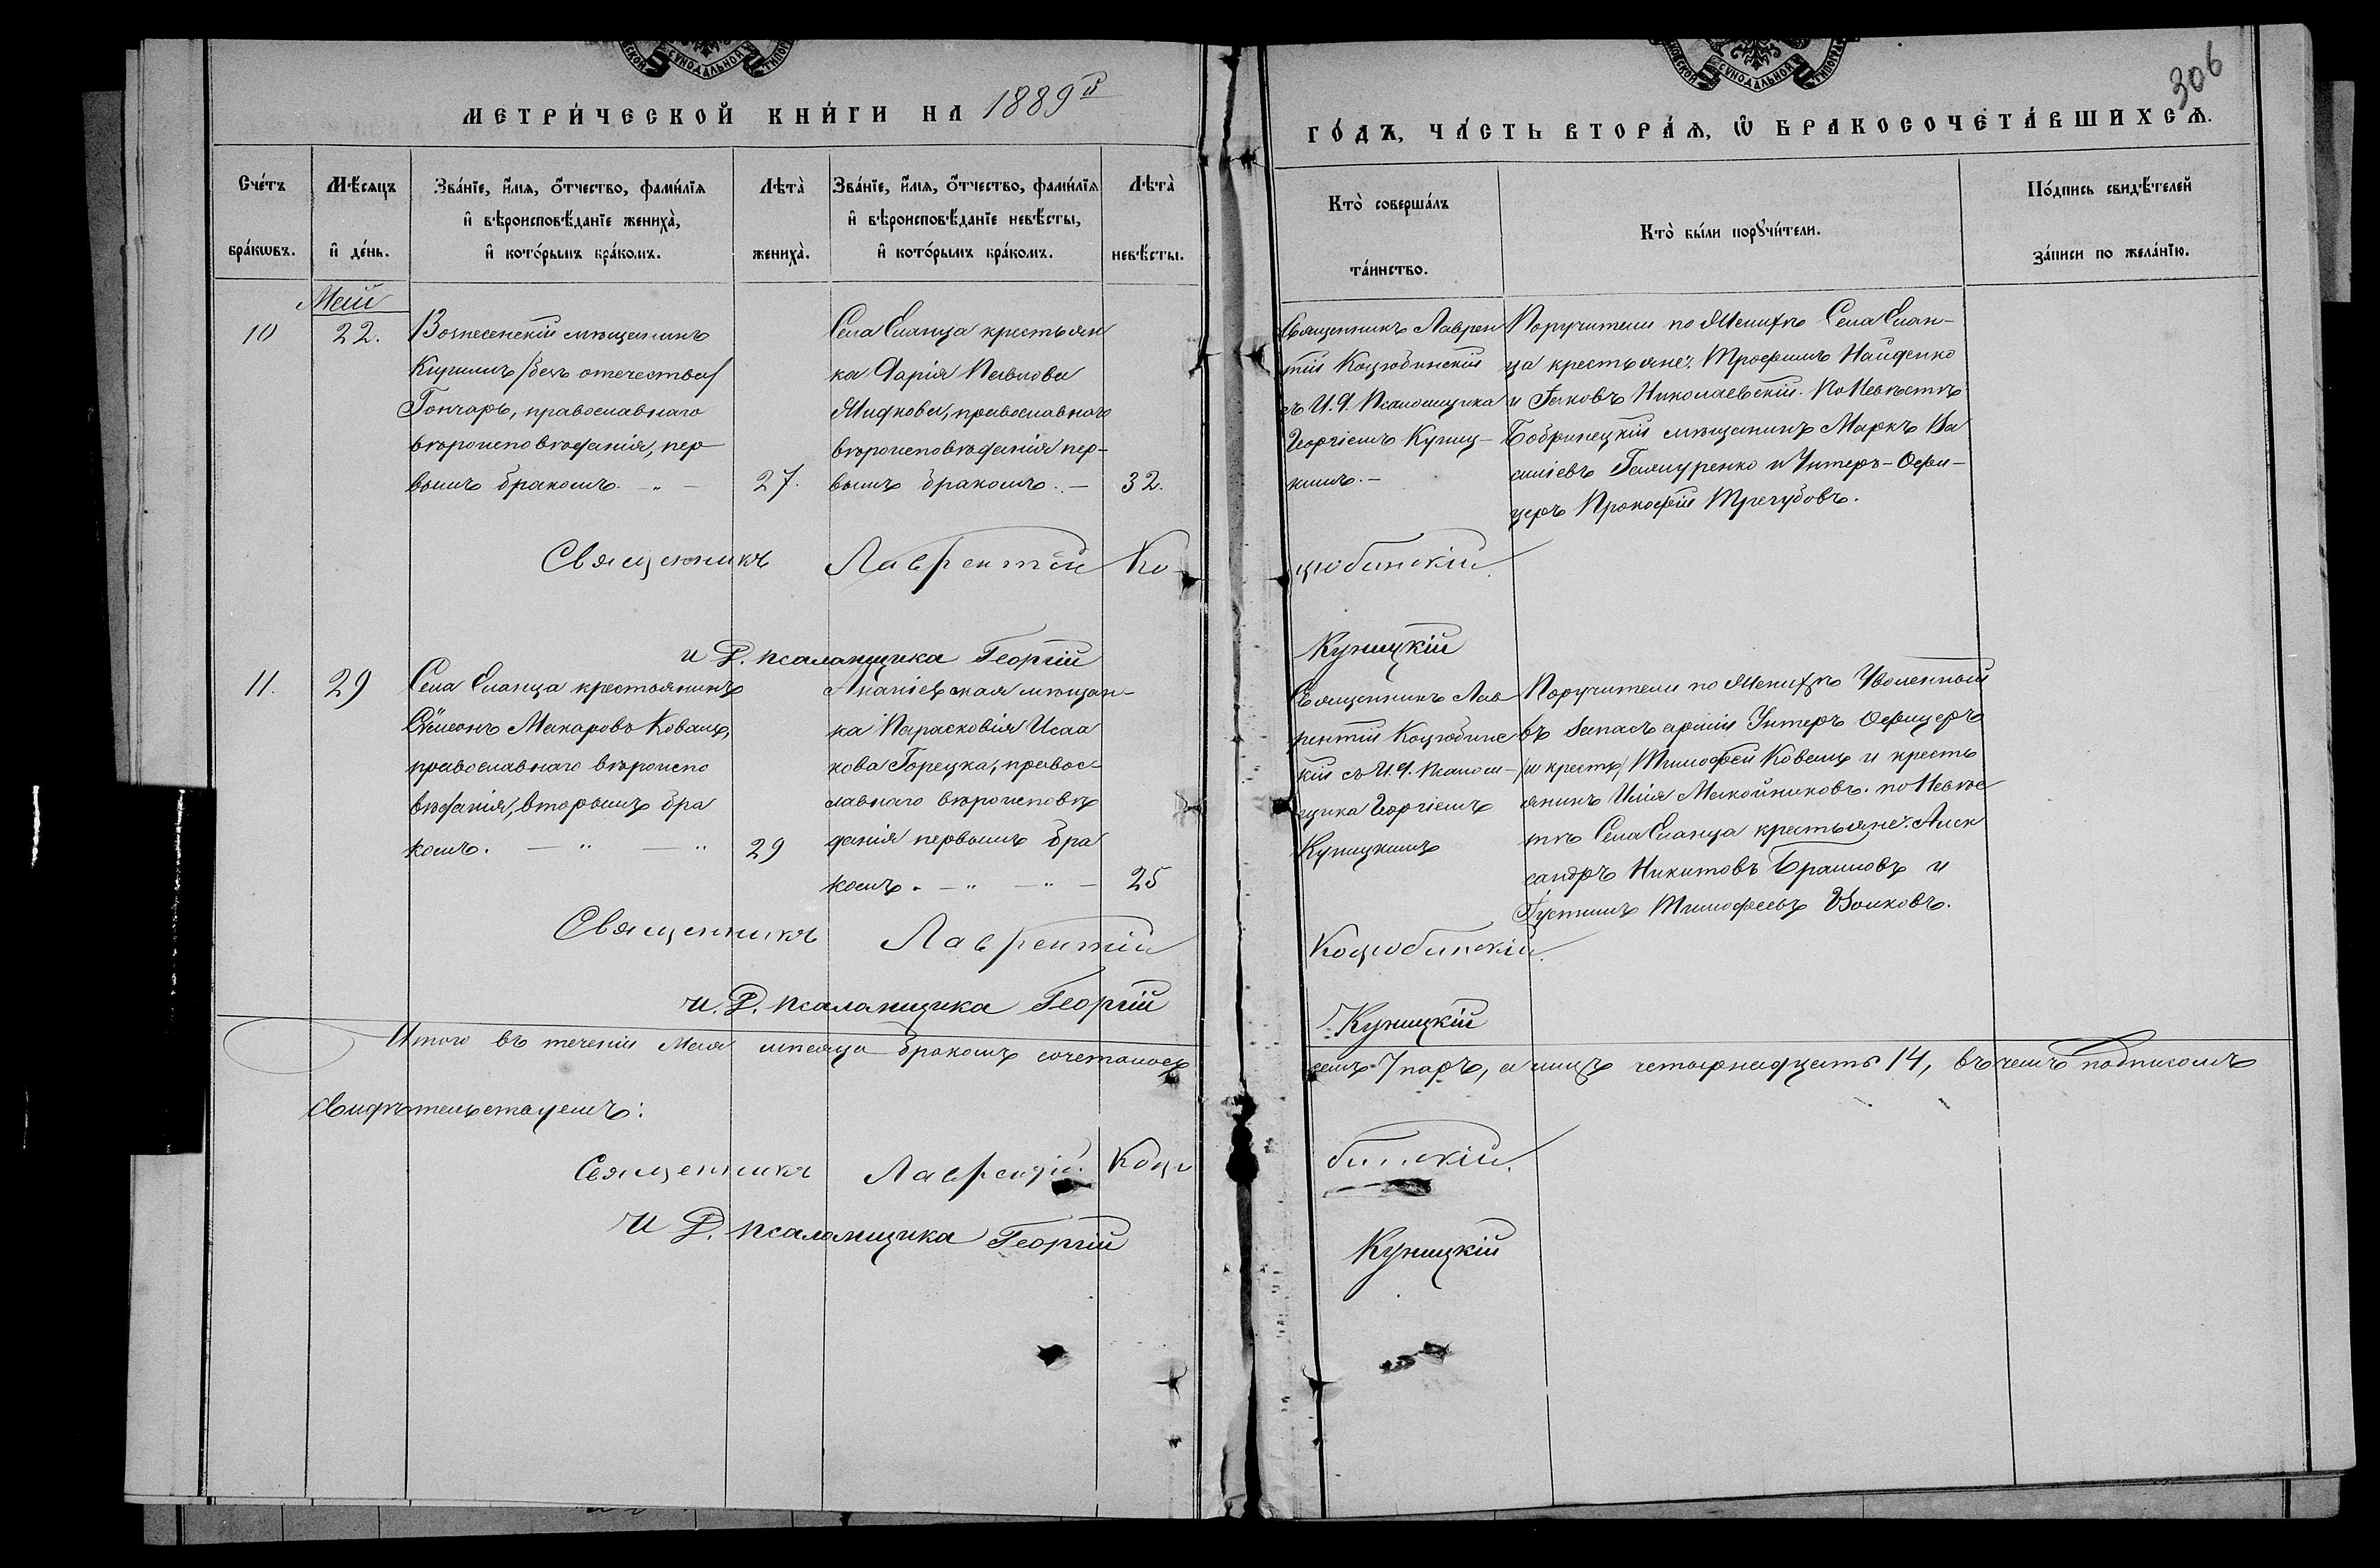 306
МЕТРИ́ЧЕСКОЙ КНИ́ГИ НА 1889й
ГО́ДЪ, ЧА́СТЬ ВТОРА́Ѧ, Ѡ҆ БРАКОСОЧЕТА́ВШИХСѦ.
Сче́тъ бра́кѡвъ.
Мѣ́сяцъ и҆ де́нь.
Зва́нїе, и҆́мѧ, ѻ҆́тчество, фами́лїѧ и҆ вѣроисповѣ́данїе жениха̀, и҆ кото́рымъ бра́комъ.
Лѣта̀ жениха̀.
Зва́нїе, и҆́мѧ, ѻ҆́тчество, фами́лїѧ и҆ вѣроисповѣ́данїе невѣ́сты, и҆ кото́рымъ бра́комъ.
Лѣта̀ невѣ́сты.
Кто̀ соверша́лъ та́инство.
Кто̀ бы́ли порꙋчи́тели.
По́дпись свидѣ́телей за́писи по жела́нїю.
Май
10
22.
Вознесенскій мѣщанинъ
Кирилъ /безъ отечества/
Гончаръ, православнаго
вѣроисповѣданія, пер
вымъ бракомъ. - " -
27.
Села Еланца крестьян
ка Дарія Павлова
Жидкова, православнаго
вѣроисповѣданія пер-
вымъ бракомъ. -
32.
Священникъ Лаврен
тій Коцюбинскій
съ И.Д. Псаломщика
Георгіемъ Куниц-
кимъ. -
Поручители по Женихѣ Села Елан-
ца крестьяне: Трофимъ Найденко
и Іаковъ Николаевскій. По Невѣстѣ
Бобринецкій мѣщанинъ Маркъ Ва
силіевъ Гамуренко и Унтеръ-Офи-
церъ Прокофій Трегубовъ.
Священникъ Лаврентій Ко-
цюбинскій.
и Д. псаломщика Георгій
Куницкій
11.
29
Села Еланца крестьянинъ
Сѵмеонъ Макаровъ Ковалъ,
православнаго вѣроиспо
вѣданія, вторымъ бра
комъ. - " - "
29
Ананіевская мѣщан-
ка Параскевія Исаа
кова Горецка, правос-
лавнаго вѣроисповѣ
данія первымъ бра
комъ. - " - " -
25
Священникъ Лав
рентій Коцюбинс
кій съ И.Д. Псалом-
щика Георгіемъ
Куницкимъ
Поручители по Женихѣ Уволенный
въ запасъ арміи Унтеръ Офицеръ
Тимофей Ковалъ и кресть
янинъ Илія по Невѣс
тѣ Села Еланца крестьяне: Алек
сандръ Никитовъ Браиловъ и
Іустинъ Тимофеевъ Волковъ.
Священникъ Лаврентій
Коцюбинскій.
и. Д. псаломщика Георгій
Куницкій
Итого въ теченіи Мая мѣсяца бракомъ сочеталось
семь 7 паръ, а лицъ четырнадцать 14, въ чемъ подписомъ
свидѣтельствуемъ:
Священникъ Лаврентій Коцю
бинскій.
и Д. псаломщика Георгій
Куницкій